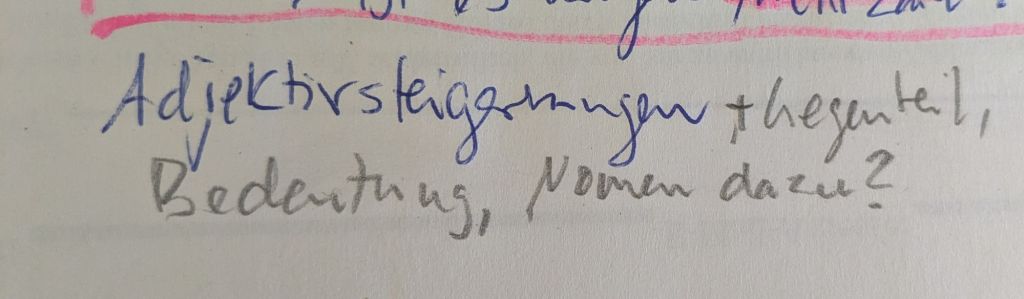 Adjektivsteigerungen + Gegenteil,
Bedeutung, Nomen dazu?